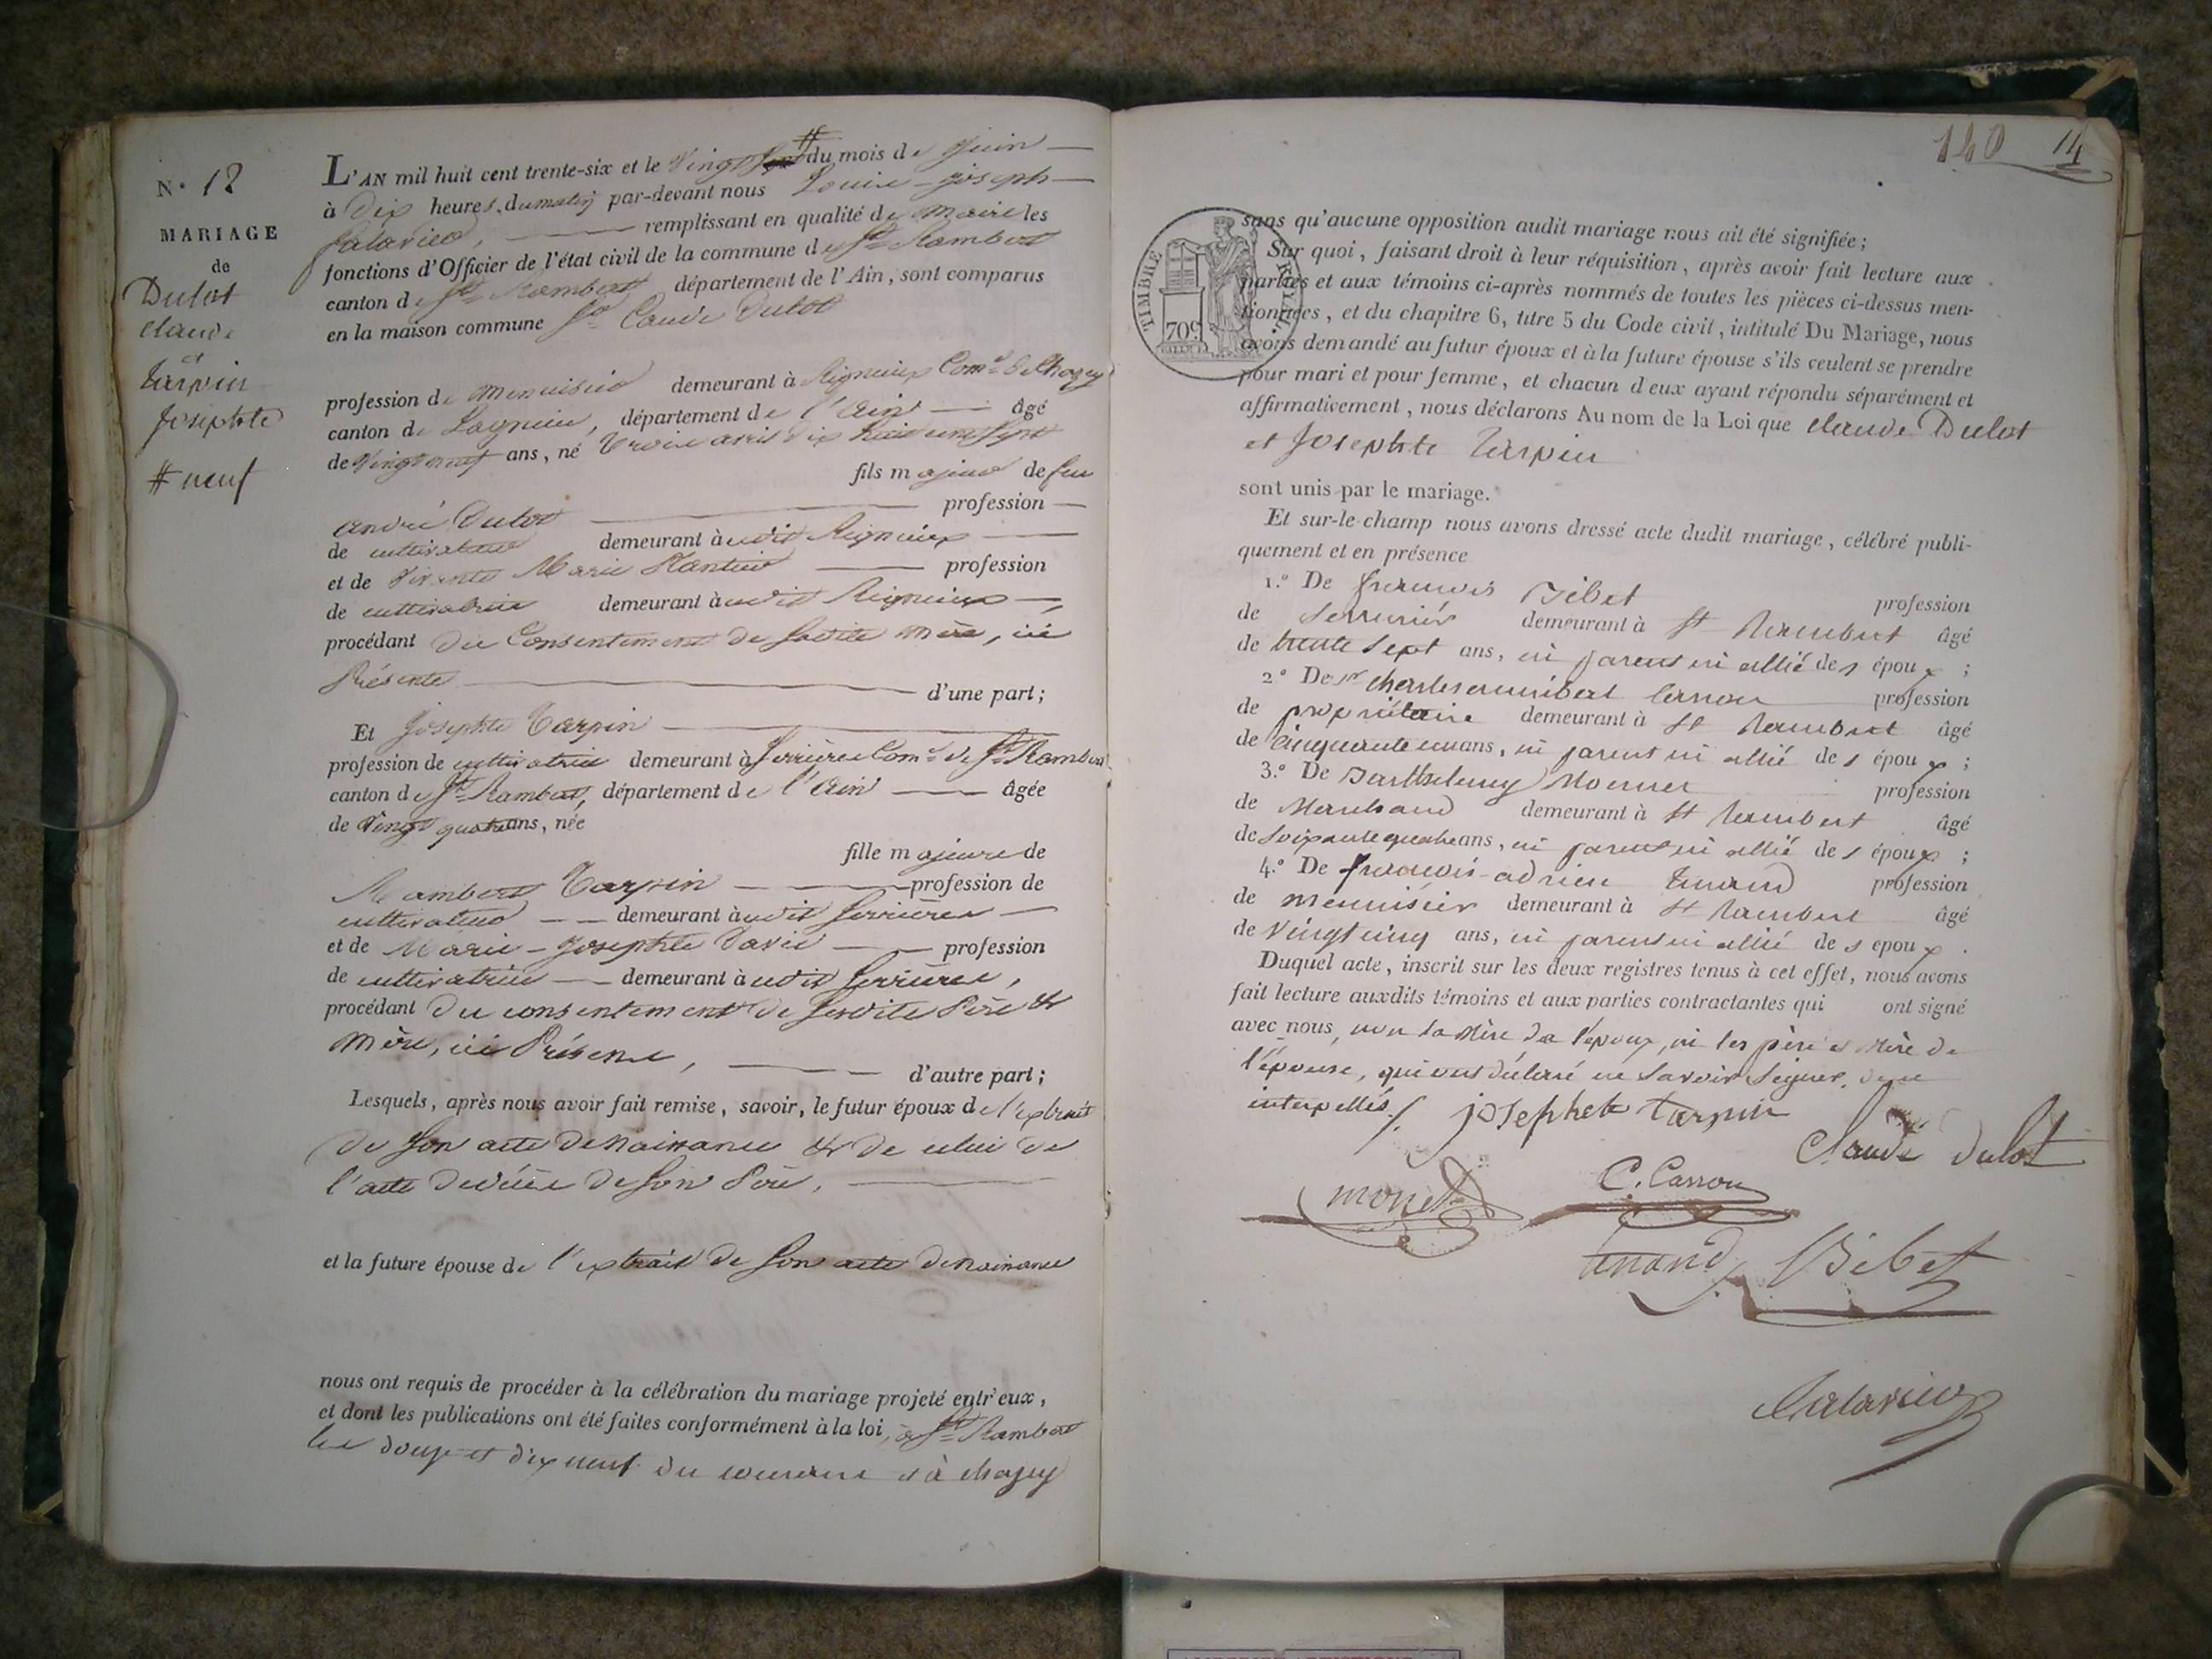 N.º 12
MARIAGE
de
Dulot
Claude
et
Tarpin
Josephte
# neuf
L'AN mil huit cent trente-six et le Vingt # du mois de Juin
à Dix heures du matin par-devant nous Louis-Joseph
remplissant en qualité de Maire les
fonctions d'Officier de l'état civil de la commune de St Rambert
canton de St Rambert département de l'Ain, sont comparus
en la maison commune Sr Claude Dulot
profession de Menuisier demeurant à Rignieux Comne de Chazey
canton de Lagnieu, département de l'Ain âgé
de Vingt neuf ans, né Trois avril dix huit cent sept
fils majeur de feu
André Dulot profession
de cultivateur demeurant audit Rignieux
et de Vivante Marie Plantier profession
de cultivatrice demeurant audit Rignieux,
procédant du Consentement de sadite mère, ici
Présente d'une part;
Et Josephte Tarpin
profession de cultivatrice demeurant à Serrières Comne de St Rambert
canton de St Rambert, département de l'Ain âgée
de Vingt quatre ans, née
fille majeure de
Rambert Tarpin profession de
cultivateur demeurant audit Serrières
et de Marie-Josephte profession
de cultivatrice demeurant audit Serrières,
procédant du consentement de sesdits Père &
Mère, ici Présens, d'autre part;
Lesquels, après nous avoir fait remise, savoir, le futur époux de l'extrait
de son acte de Naissance & de celui de
l'acte de décès de son Père,
et la future épouse de l'extrait de son acte de Naissance
nous ont requis de procéder à la célébration du mariage projeté entr'eux,
et dont les publications ont été faites conformément à la loi, à St Rambert
les douze et dix neuf du courant et à Chazey
140 14
TIMBRE ROYAL
70c
sans qu'aucune opposition audit mariage nous ait été signifiée;
Sur quoi, faisant droit à leur réquisition, après avoir fait lecture aux
parties et aux témoins ci-après nommés de toutes les pièces ci-dessus men-
tionnées, et du chapitre 6, titre 5 du Code civil, intitulé Du Mariage, nous
avons demandé au futur époux et à la future épouse s'ils veulent se prendre
pour mari et pour femme, et chacun d'eux ayant répondu séparément et
affirmativement, nous déclarons Au nom de la Loi que Claude Dulot
et Josephte Tarpin
sont unis par le mariage.
Et sur-le-champ nous avons dressé acte dudit mariage, célébré publi-
quement et en présence
1.º De françois Bibet profession
de serrurier demeurant à St Rambert âgé
de trente sept ans, ni parent ni allié des époux;
2º De Sr Charles annibal Carron profession
de propriétaire demeurant à St Rambert âgé
de Cinquante un ans, ni parent ni allié des époux;
3.º De Barthelemy Monnet profession
de Marchand demeurant à St Rambert âgé
de Soixante quatre ans, ni parent ni allié des époux;
4.º De françois-adrien profession
de menuisier demeurant à St Rambert âgé
de Vingt cinq ans, ni parent ni allié des epoux.
Duquel acte, inscrit sur les deux registres tenus à cet effet, nous avons
fait lecture auxdits témoins et aux parties contractantes qui ont signé
avec nous, non la Mère de l'époux, ni les père et Mère de
l'épouse, qui ont déclaré ne savoir signer, de ce
interpellés./. josephete tarpin
Claude Dulot
monet
C. Carron
Bibet